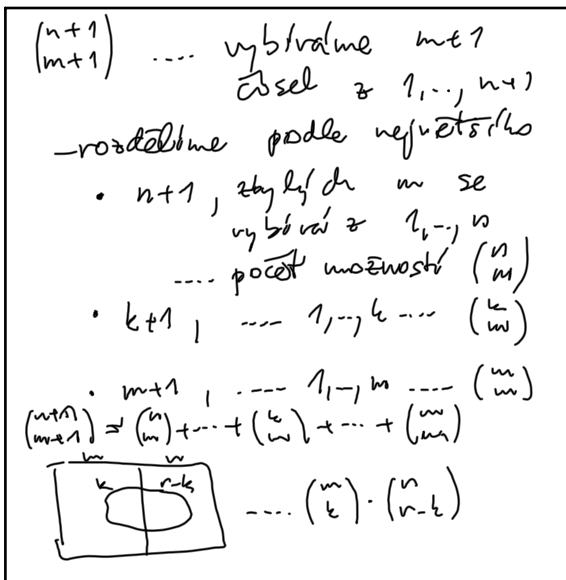 (n+1 \ m+1) .... vybíráme m+1
čísel z 1,.., n+1
- rozdělíme podle největšího
• n+1, zbylých m se
vybírá z 1,.., n
.... počet možností (n \ m)
• k+1, .... 1,.., k .... (k \ m)
• m+1, .... 1,.., m .... (m \ m)
(n+1 \ m+1) = (n \ m) + ... + (k \ m) + ... + (m \ m)
m n
k r-k .... (m \ k) · (n \ r-k)